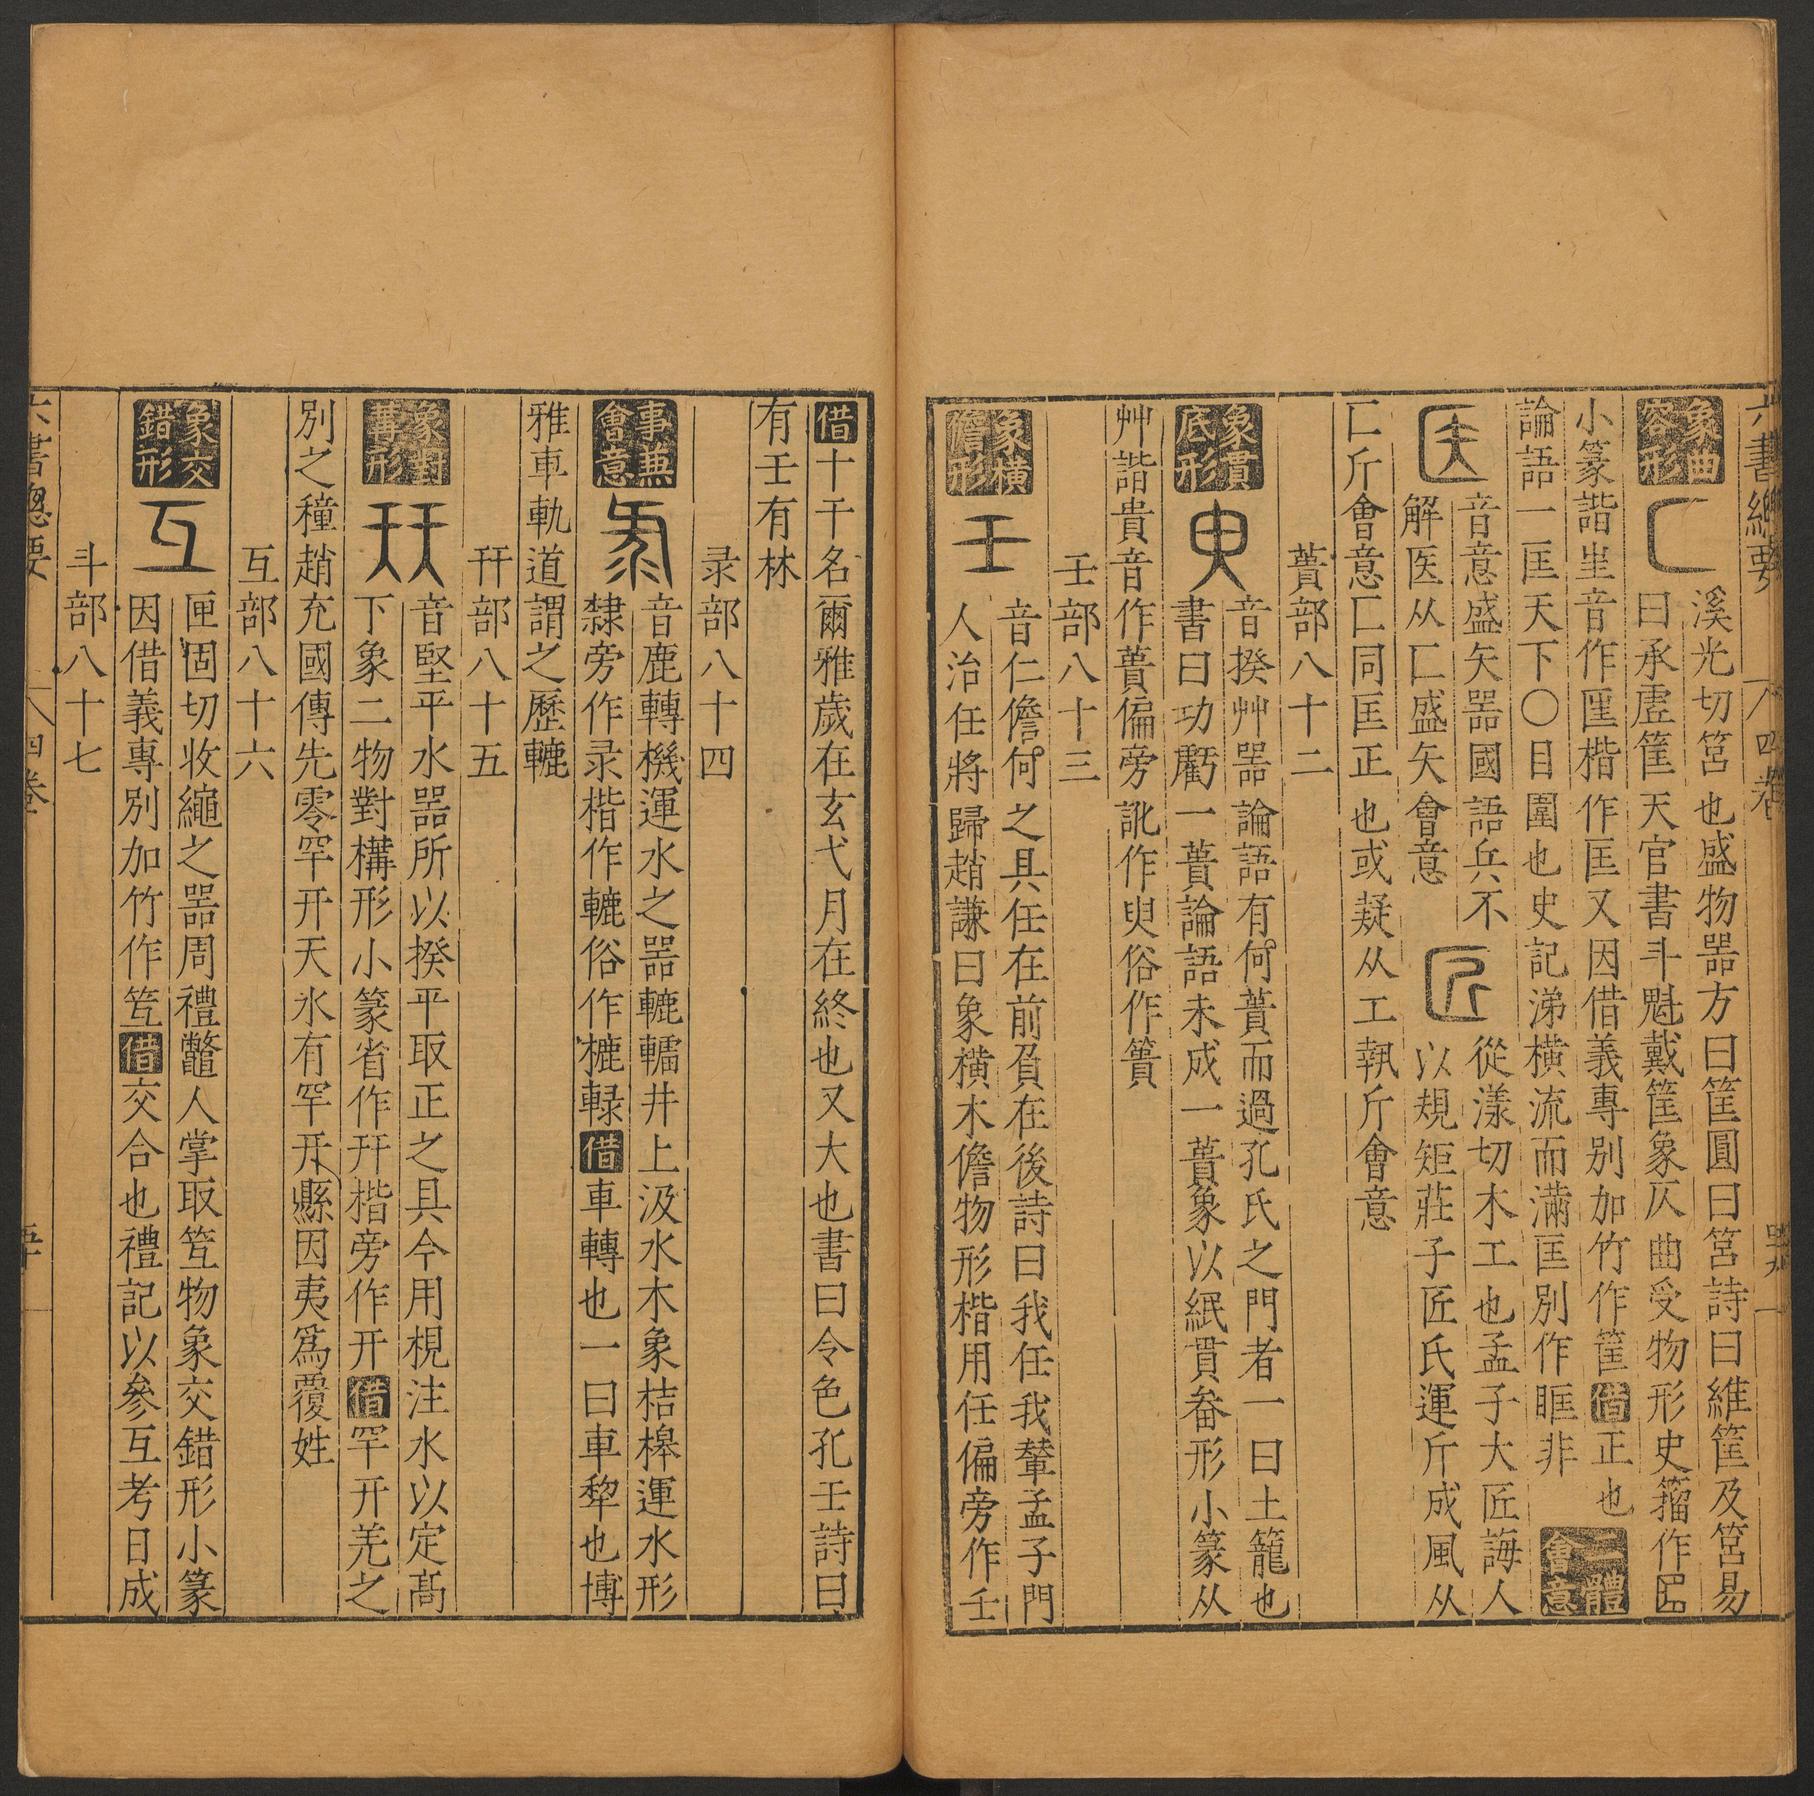 六書總要 四卷
象曲容形 匚 溪光切筥也盛物器方曰筐圓曰筥詩曰維筐及筥易
曰承虛筐天官書斗魁戴筐象仄曲受物形史籀作
小篆諧㞷音作匩楷作匡又因借義專別加竹作筐借正也
論語一匡天下〇目圍也史記涕橫流而滿匡別作眶非
二體會意
医 音意盛矢器國語兵不
解医从匚盛矢會意
匠 從漾切木工也孟子大匠誨人
以規矩莊子匠氏運斤成風从
匚斤會意匚同匡正也或疑从工執斤會意
蕢部八十二
象貫底形 臾 音揆艸器論語有何蕢而過孔氏之門者一曰土籠也
書曰功虧一蕢論語未成一蕢象以緄貫畚形小篆从
艸諧貴音作蕢偏旁訛作臾俗作簣
壬部八十三
象橫儋形 壬 音仁儋何之具任在前負在後詩曰我任我輦孟子門
人治任將歸趙謙曰象橫木儋物形楷用任偏旁作壬
借十干名爾雅歲在玄弋月在終也又大也書曰令色孔壬詩曰
有壬有林
彔部八十四
事兼會意 彔 音鹿轉機運水之器轆轤井上汲水木象桔槔運水形
隸旁作录楷作轆俗作樚䡜借車轉也一曰車犂也博
雅車軌道謂之歷轆
幵部八十五
象對冓形 幵 音堅平水器所以揆平取正之具今用梘注水以定高
下象二物對構形小篆省作幵楷旁作开借罕幵羌之
別之種趙充國傳先零罕幵天水有罕幵縣因夷爲覆姓
互部八十六
象交錯形 互 匣固切收繩之器周禮鼈人掌取笠物象交錯形小篆
因借義專別加竹作笠借交合也禮記以參互考日成
斗部八十七
六書總要 四卷